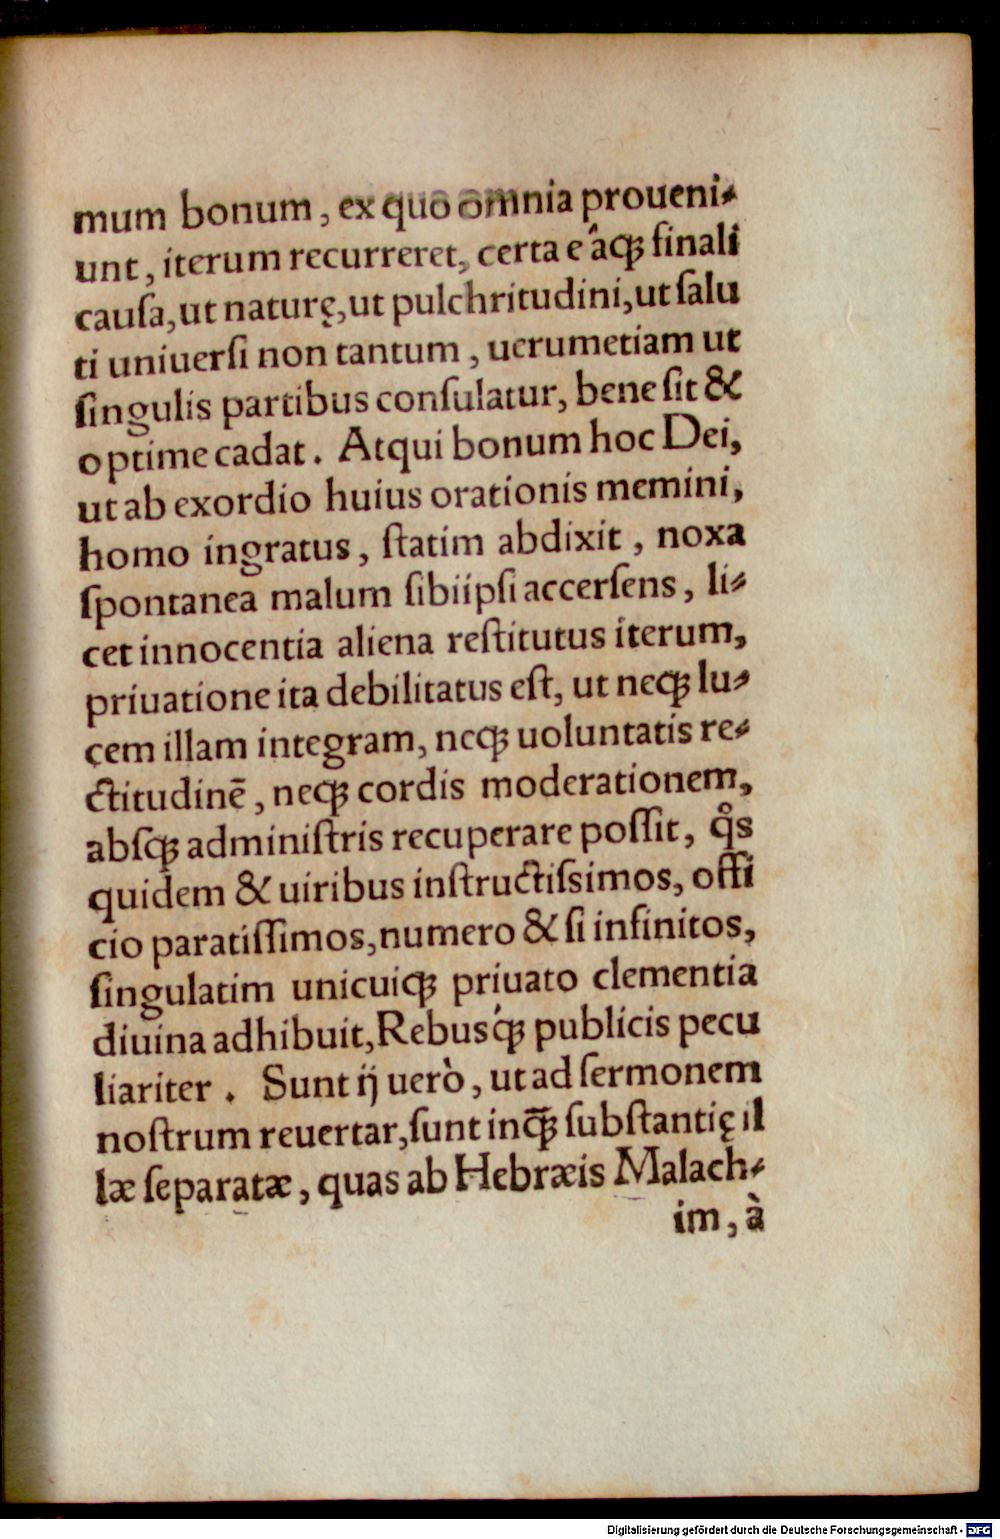 mum bonum, ex quo omnia proueni⸗
unt, iterum recurreret, certa e âcꝗ finali
cauſa, ut naturę, ut pulchritudini, ut ſalu
ti uniuerſi non tantum, uerumetiam ut
ſingulis partibus conſulatur, bene ſit &
optime cadat. Atqui bonum hoc Dei,
ut ab exordio huius orationis memini,
homo ingratus, ſtatim abdixit, noxa
ſpontanea malum ſibiipſi accerſens, li⸗
cet innocentia aliena reſtitutus iterum,
priuatione ita debilitatus eſt, ut neqꝫ lu⸗
cem illam integram, neqꝫ uoluntatis re⸗
ctitudinē, neqꝫ cordis moderationem,
abſqꝫ adminiſtris recuperare poſſit, qͦs
quidem & uiribus inſtructiſsimos, offi
cio paratiſſimos, numero & ſi infinitos,
ſingulatim unicuiqꝫ priuato clementia
diuina adhibuit, Rebusq́ꝫ publicis pecu
liariter. Sunt ij uerò, ut ad ſermonem
noſtrum reuertar, ſunt inq̄ꝫ ſubſtantię il
læ ſeparatæ, quas ab Hebræis Malach⸗
im, à
Digitalisierung gefördert durch die Deutsche Forschungsgemeinschaft - DFG